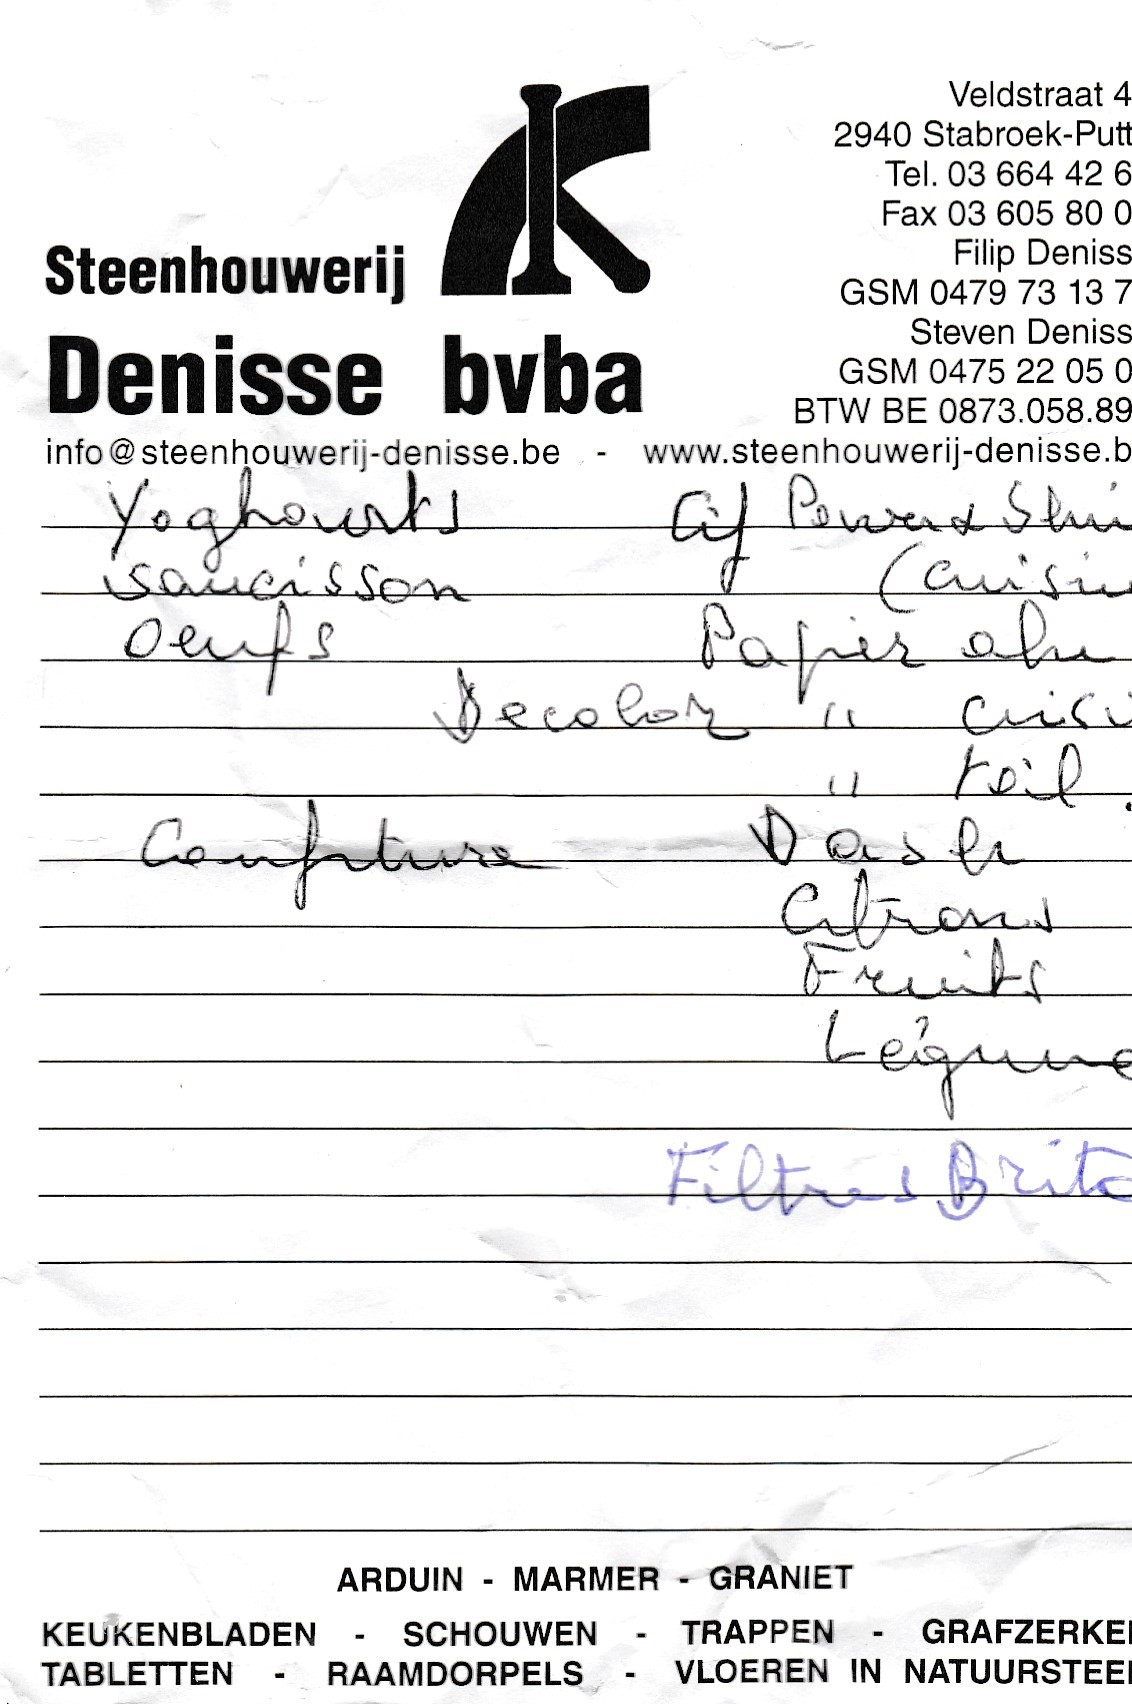 Veldstraat 4
2940 Stabroek-Putt
Tel. 03 664 42 6
Fax 03 605 80 0
Filip Deniss
GSM 0479 73 13 7
Steven Deniss
GSM 0475 22 05 0
BTW BE 0873.058.89
Steenhouwerij
Denisse bvba
info@steenhouwerij-denisse.be - www.steenhouwerij-denisse.b
Yoghourts Cif Power & Shi
saucisson (cuisi
Oeufs Papier alu
Decolor " cuisi
" toil.
Confiture Dash
Citrons
Fruits
Légume
Filtres Brita
ARDUIN - MARMER - GRANIET
KEUKENBLADEN - SCHOUWEN - TRAPPEN - GRAFZERKE
TABLETTEN - RAAMDORPELS - VLOEREN IN NATUURSTEE